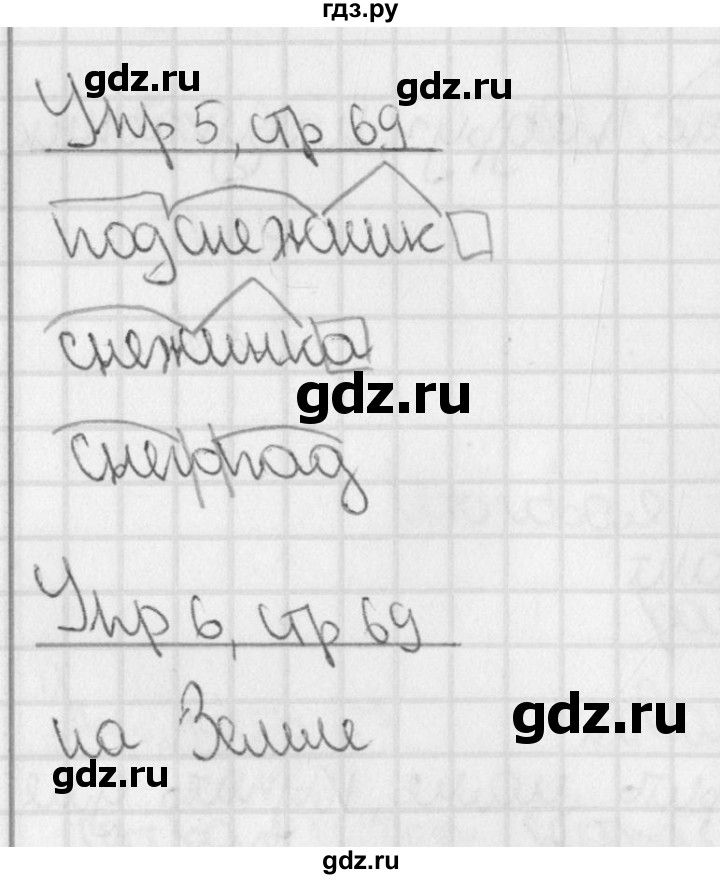 гдз.ру
gdz.ru
gdz.ru
Упр 5, стр 69
подснежник
снежинка
gdz.ru
снегопад
Упр 6, стр 69
на Земле
gdz.ru
gdz.ru
gdz.ru